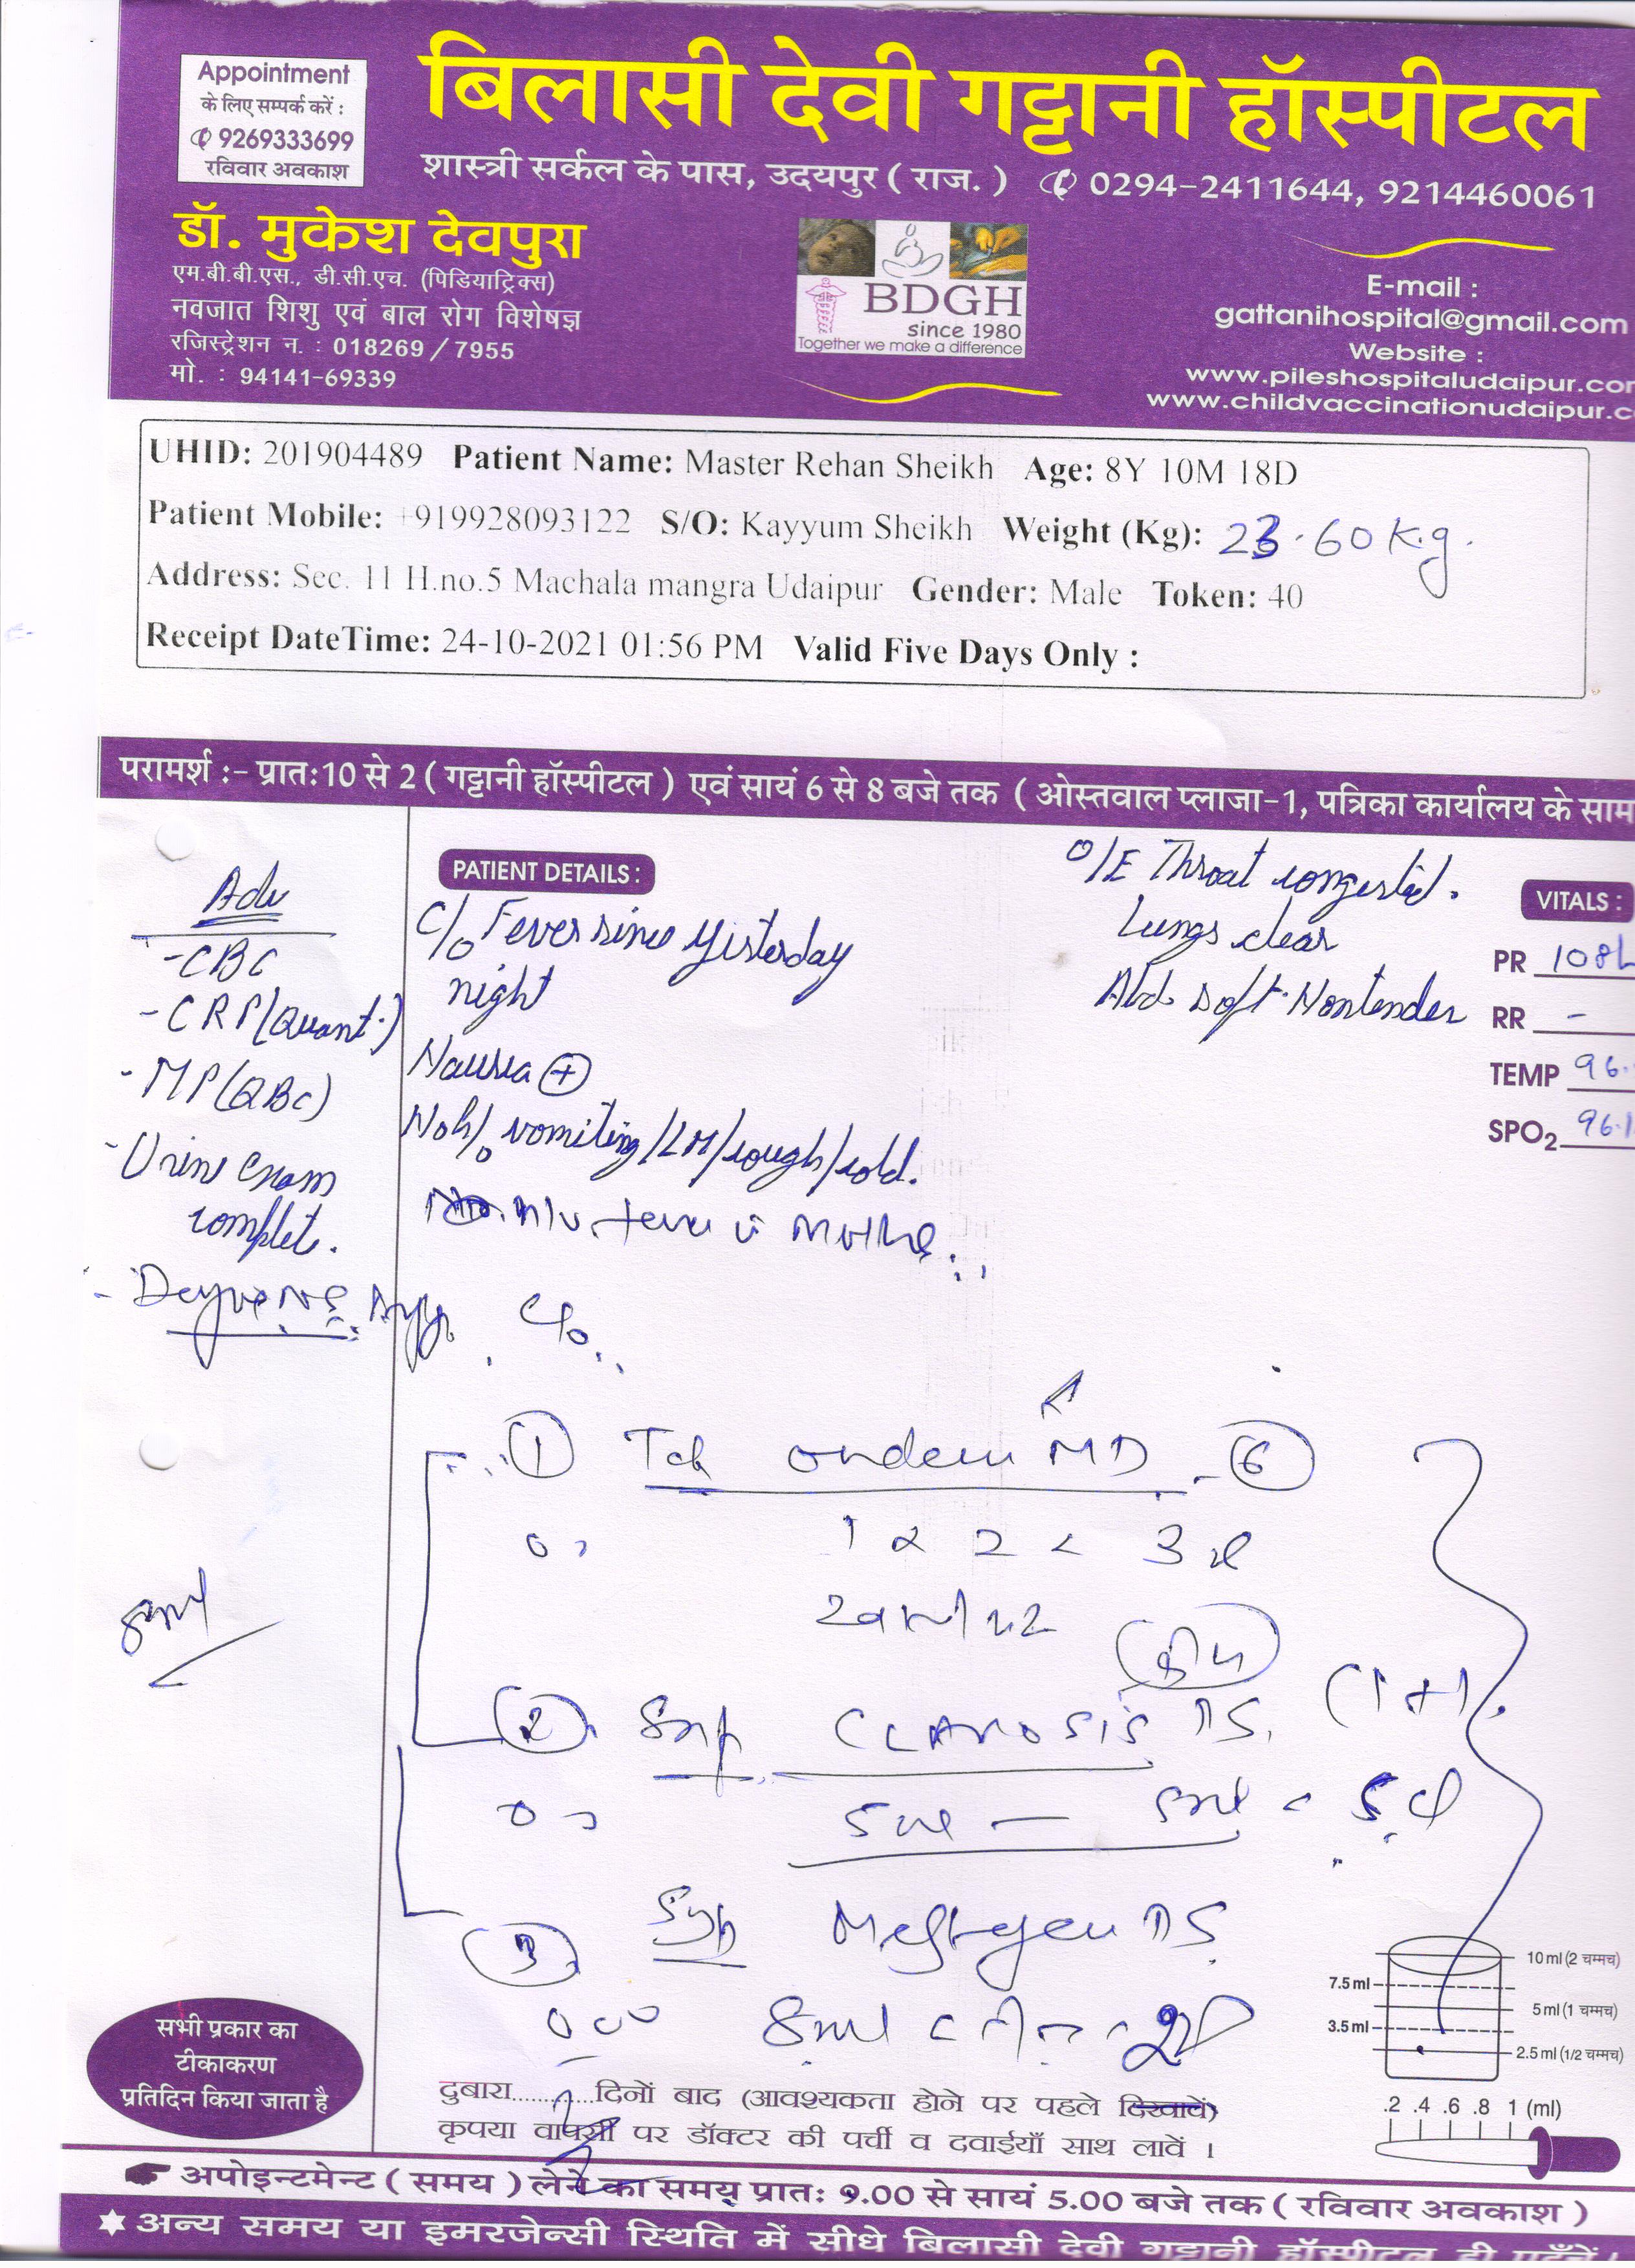 Appointment
के लिए सम्पर्क करें :
9269333699
रविवार अवकाश
बिलासी देवी गट्टानी हॉस्पीटल
शास्त्री सर्कल के पास, उदयपुर ( राज. ) 0294-2411644, 9214460061
डॉ. मुकेश देवपुरा
एम.बी.बी.एस., डी.सी.एच. (पिडियाट्रिक्स)
नवजात शिशु एवं बाल रोग विशेषज्ञ
रजिस्ट्रेशन न. : 018269 / 7955
मो. : 94141-69339
BDGH
since 1980
Together we make a difference
E-mail :
gattanihospital@gmail.com
Website :
www.pileshospitaludaipur.com
www.childvaccinationudaipur.c
UHID: 201904489 Patient Name: Master Rehan Sheikh Age: 8Y 10M 18D
Patient Mobile: +919928093122 S/O: Kayyum Sheikh Weight (Kg): 23.60 Kg.
Address: Sec. 11 H.no.5 Machala mangra Udaipur Gender: Male Token: 40
Receipt DateTime: 24-10-2021 01:56 PM Valid Five Days Only :
परामर्श :- प्रातः 10 से 2 ( गट्टानी हॉस्पीटल ) एवं सायं 6 से 8 बजे तक ( ओस्तवाल प्लाजा-1, पत्रिका कार्यालय के साम
Adv
- CBC
- CRP (Quant.)
- MP (QBC)
- Urine Exam
complet.
PATIENT DETAILS :
C/o Fever since yisterday
night
Nausea +
No h/o vomiting/LM/cough/cold.
O/E Throat congested.
Lungs clear
Abd. soft. Nontender
VITALS :
PR 108
RR -
TEMP 96.
SPO2 96
1 Tab ondem MD - 6
2 Syp CLAMOSIS DS.
5ml
3 Syp Meftagen DS
8ml
10 ml (2 चम्मच)
7.5 ml
5 ml (1 चम्मच)
3.5 ml
2.5 ml (1/2 चम्मच)
.2 .4 .6 .8 1 (ml)
सभी प्रकार का
टीकाकरण
प्रतिदिन किया जाता है
दुबारा............दिनों बाद (आवश्यकता होने पर पहले दिखावें)
कृपया वापसी पर डॉक्टर की पर्ची व दवाईयाँ साथ लावें ।
अपोइन्टमेन्ट ( समय ) लेने का समय प्रातः 9.00 से सायं 5.00 बजे तक ( रविवार अवकाश )
अन्य समय या इमरजेन्सी स्थिति में सीधे बिलासी देवी गट्टानी हॉस्पीटल ही पहुँचें।